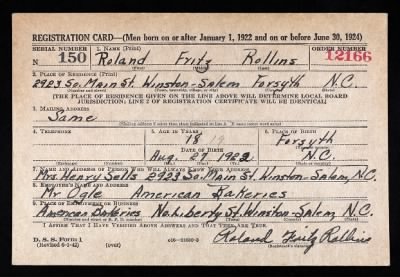 REGISTRATION CARD—(Men born on or after January 1, 1922 and on or before June 30, 1924)
SERIAL NUMBER 1. NAME (Print) ORDER NUMBER
N 150 Roland Fritz Rollins 12166
(First) (Middle) (Last)
2. PLACE OF RESIDENCE (Print)
2923 So. Main St. Winston-Salem Forsyth N.C.
(Number and street) (Town, township, village, or city) (County) (State)
[THE PLACE OF RESIDENCE GIVEN ON THE LINE ABOVE WILL DETERMINE LOCAL BOARD
JURISDICTION; LINE 2 OF REGISTRATION CERTIFICATE WILL BE IDENTICAL]
3. MAILING ADDRESS
Same
(Mailing address if other than place indicated on line 2. If same insert word same)
4. TELEPHONE 5. AGE IN YEARS 6. PLACE OF BIRTH
18 Forsyth
DATE OF BIRTH
Aug. 27 1923 N.C.
(Exchange) (Number) (Mo.) (Day) (Yr.) (State or country)
7. NAME AND ADDRESS OF PERSON WHO WILL ALWAYS KNOW YOUR ADDRESS
Mrs. Henry Salts 2923 So. Main St. Winston-Salem, N.C.
8. EMPLOYER'S NAME AND ADDRESS
Mr. Ogle American Bakeries
9. PLACE OF EMPLOYMENT OR BUSINESS
American Bakeries No. Liberty St. Winston-Salem N.C.
(Number and street or R. F. D. number) (Town) (County) (State)
I AFFIRM THAT I HAVE VERIFIED ABOVE ANSWERS AND THAT THEY ARE TRUE.
D. S. S. Form 1 Roland Fritz Rollins
(Revised 6-9-42) (over) (Registrant's signature)